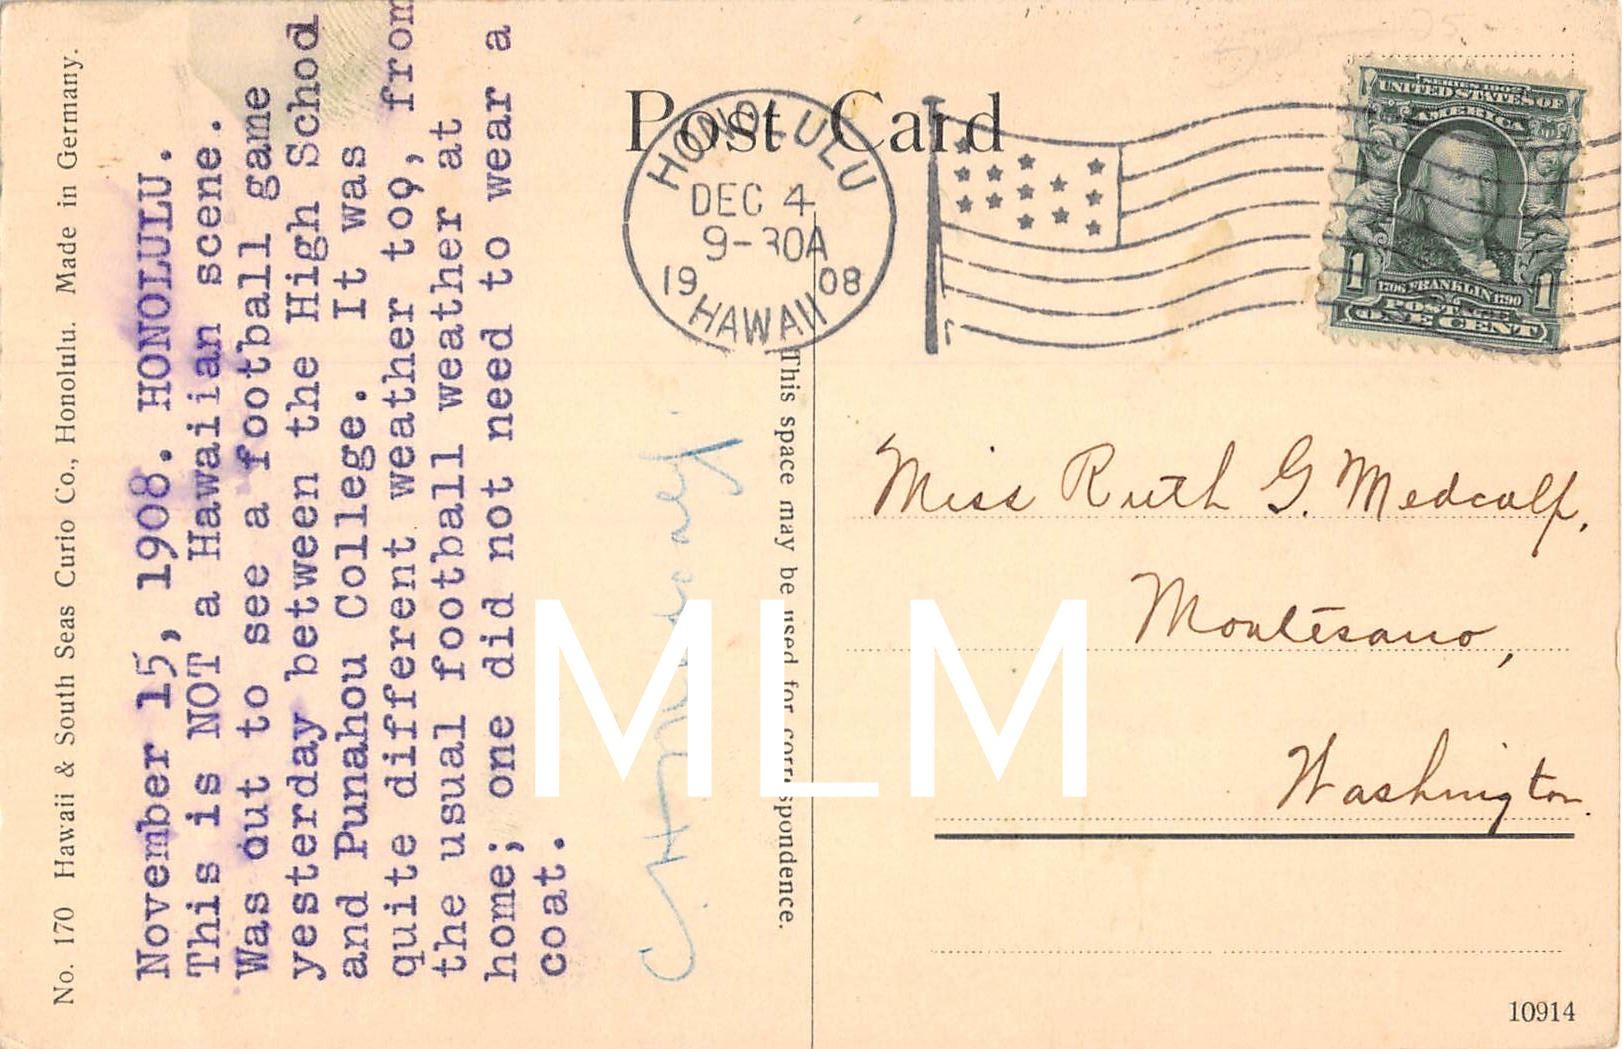 No. 170 Hawaii & South Seas Curio Co., Honolulu. Made in Germany.
November 15, 1908. HONOLULU.
This is NOT a Hawaiian scene.
Was out to see a football game
yesterday between the High School
and Punahou College. It was
quite different weather too, from
the usual football weather at
home; one did not need to wear a
coat.
This space may be used for correspondence.
Post Card
HONOLULU
DEC 4
9-30A
1908
HAWAII
SERIES 1902
UNITED STATES OF
AMERICA
1 1706 FRANKLIN 1790 1
POSTAGE
ONE CENT
Miss Ruth G. Medcalf,
Montesano,
Washington.
10914
MLM